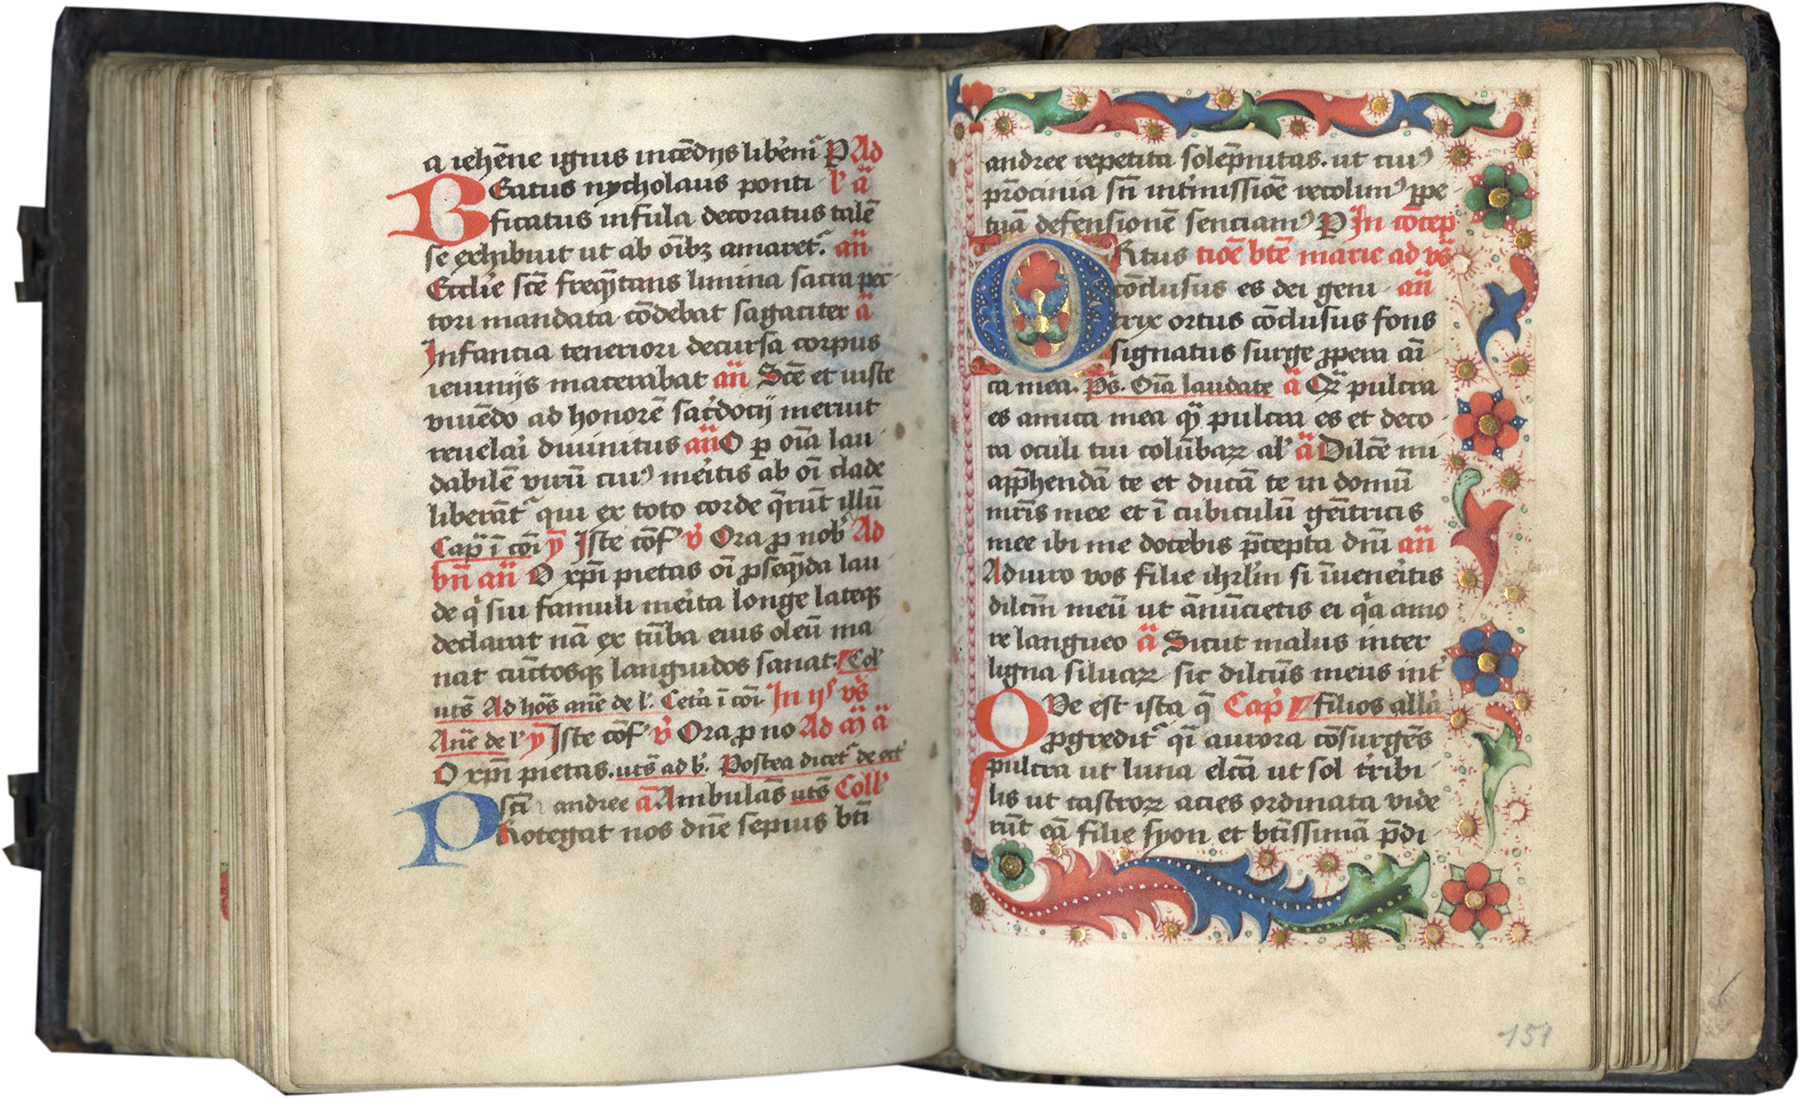 a iehēne ignis incēdijs liberm̄ P Ad
BEatus nycholaus ponti l' ā
ficatus infula decoratus talē
se exhibuit ut ab oībꝫ amaret᷑. an̄
Ecclīe scē freq̄tans limina sacra pec
tori mandata cōdebat sagaciter ā
Infancia teneriori decursa corpus
ieiunijs macerabat an̄ Scē et iuste
viuēdo ad honorē sac̄docij meruit
reuelari diuinitus an̄ O ꝑ oīa lau
dabilē virū cuiꝰ meritis ab oī clade
liberāt᷑ qui ex toto corde q̄rūt illū
Cap̄ ī cōi ꝟ Iste cōf' ꝟ Ora ꝓ nob' Ad
bn̄ an̄ O xp̄i pietas oī ꝓseq̄da lau
de q' sui famuli meita longe lateqꝫ
declarat nā ex tūba eius oleū ma
nat cūctosqꝫ languidos sanat. Col'
uts̄ Ad ho᷑s an̄e de l'. Cet'a ī cōi In ijˢ vs̄
An̄e de l' ꝟ Iste cōf' ꝟ Ora ꝓ no Ad m̄ ā
O xp̄i pietas. uts̄ ad b'. Postea dicet᷑ de oct'
P scī andree ā Ambulās uts̄ Coll'
Rotegat nos dn̄e sepius btī
andree repetita solēpnitas. ut cuiꝰ
pr̄ocinia sn̄ int'missiōe recolimꝰ ꝑpe
tuā defensionē senciamꝰ P In cōcep
ORtus tiōē btē marie ad vs̄
cōclusus es dei geni an̄
tryx ortus cōclusus fons
signatus surge ꝓpera am̄
ca mea. Ps̄. Oīa laudate ā Q̄ pulcra
es amica mea q̄ pulcra es et deco
ra oculi tui colūbaꝝ al' ā Dilcē mi
app̄hendā te et ducā te in domū
mr̄is mee et ī cubiculū gēitricis
mee ibi me docebis p̄cepta dn̄i an̄
Adiuro vos filie ihrl'm si īueneritis
dilcm̄ meū ut ān̄ūcietis ei q'a amo
re langueo ā Sicut malus inter
ligna siluaꝝ sic dilcūs meus int'
QVe est ista q̄ Cap' filios allā
ꝓgredit᷑ q̄i aurora cōsurgēs
pulcra ut luna elcā ut sol t'ribi
lis ut castroꝝ acies ordinata vide
rūt eā filie syon et btīssimā p̄di
151